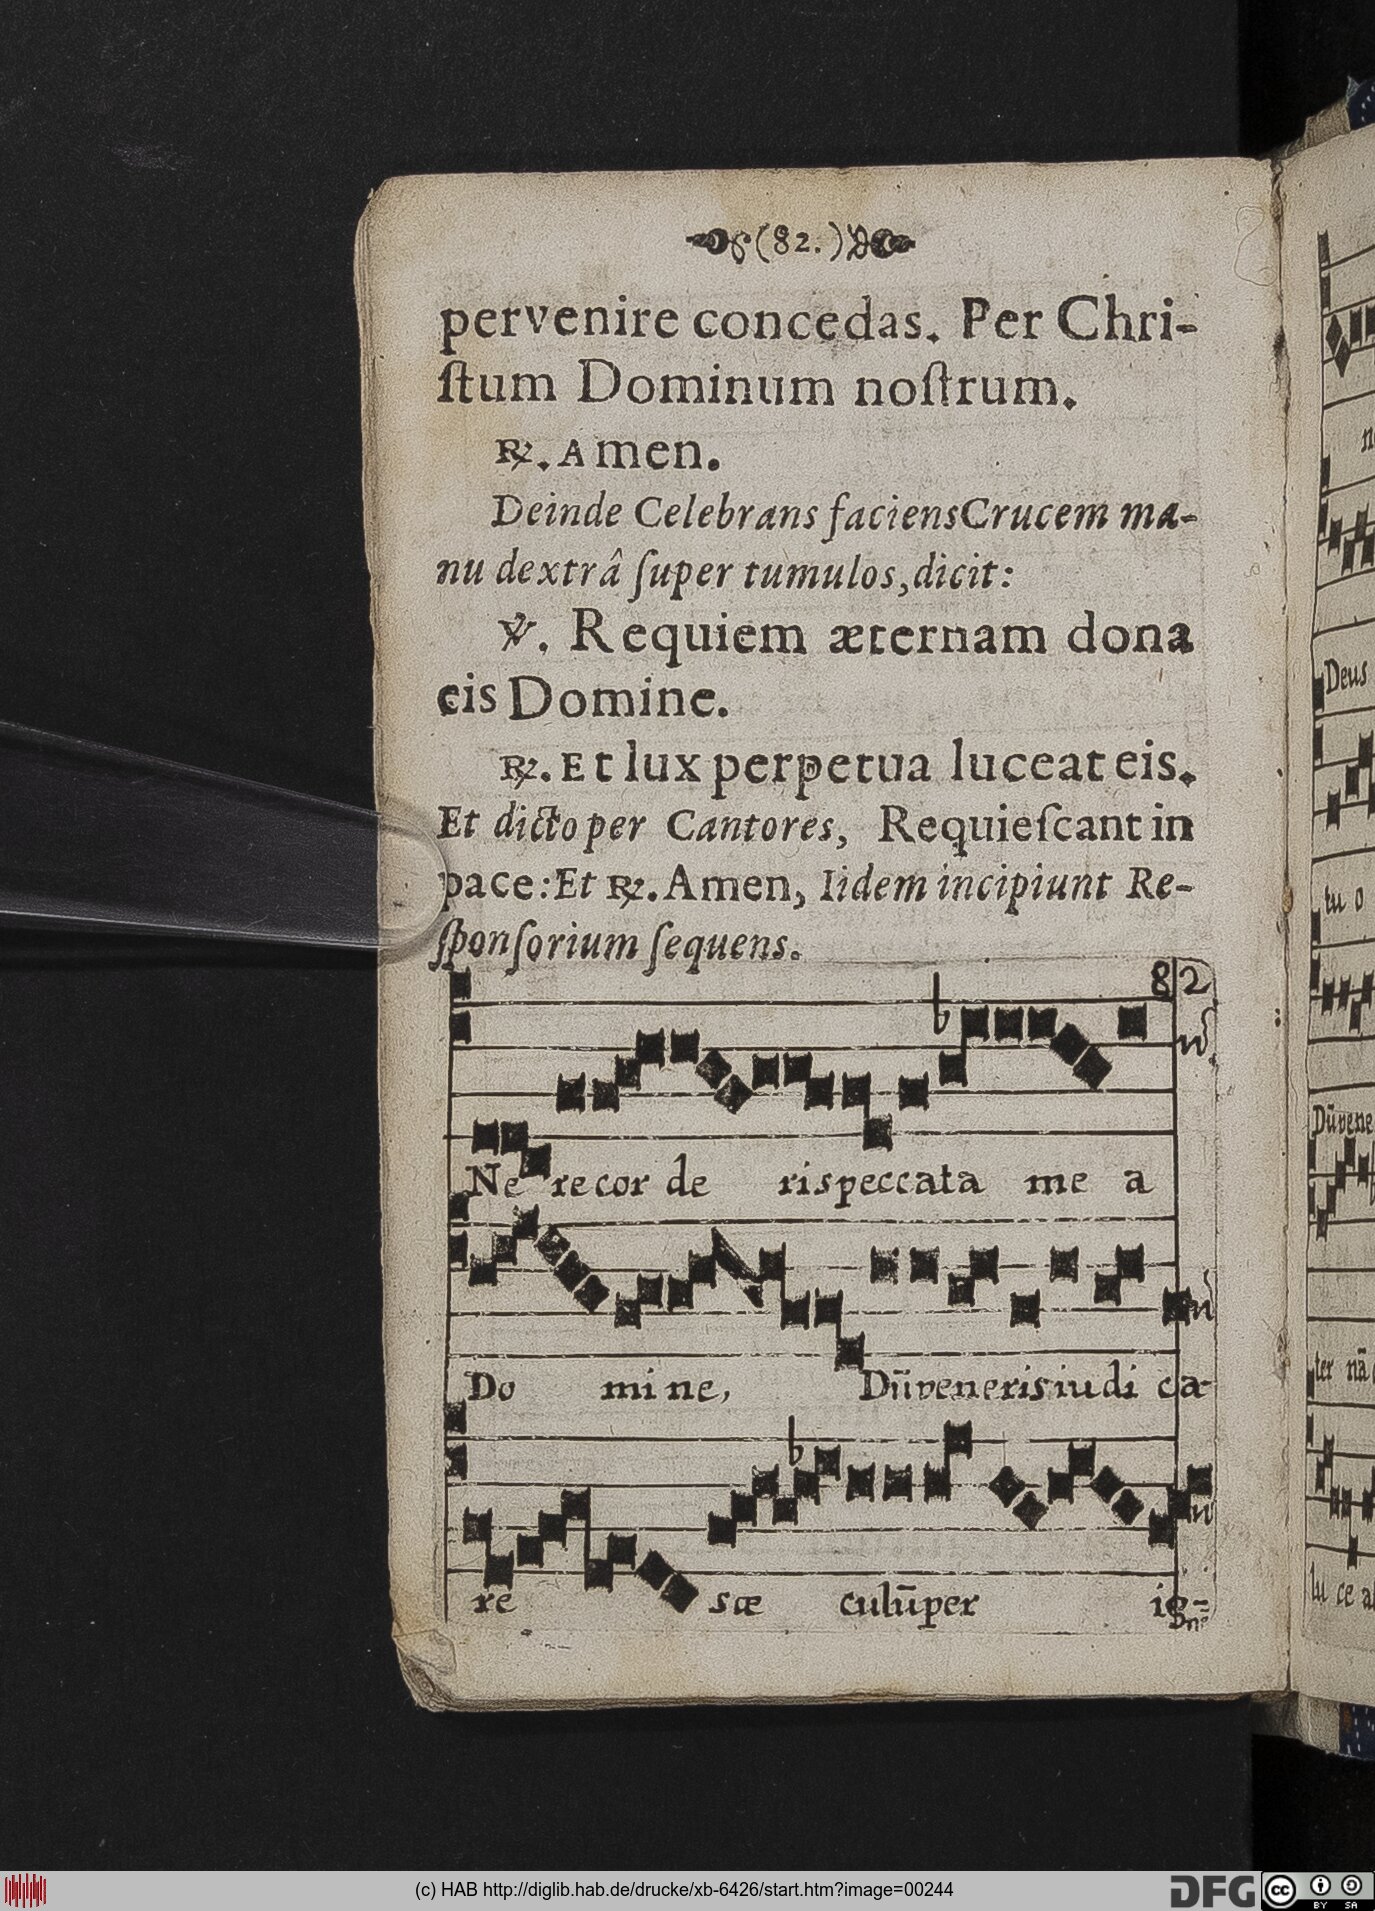 (82.)
pervenire concedas. Per Chri-
ſtum Dominum noſtrum.
℟. Amen.
Deinde Celebrans faciens Crucem ma-
nu dextrâ ſuper tumulos, dicit:
℣. Requiem æternam dona
eis Domine.
℟. Et lux perpetua luceat eis.
Et dicto per Cantores, Requieſcant in
pace: Et ℟. Amen, Iidem incipiunt Re-
ſponſorium ſequens.
82
Ne recor de ris peccata me a
Do mi ne, Dū veneris iudi ca
re sæ culū per ig-
Deus
tu o
Dū vene
ter nā
lu ce a
(c) HAB http://diglib.hab.de/drucke/xb-6426/start.htm?image=00244
DFG
cc
BY SA